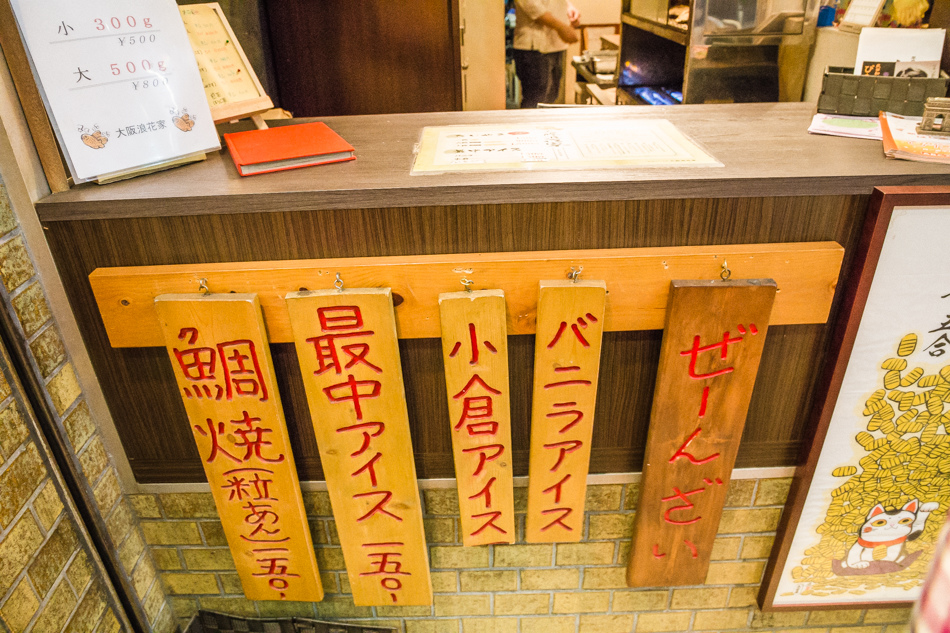 小 300g
¥500
大 500g
¥800
大阪浪花家
鯛焼(粒あん)一五〇-
最中アイス 一五〇-
小倉アイス
バニラアイス
ぜーんざい